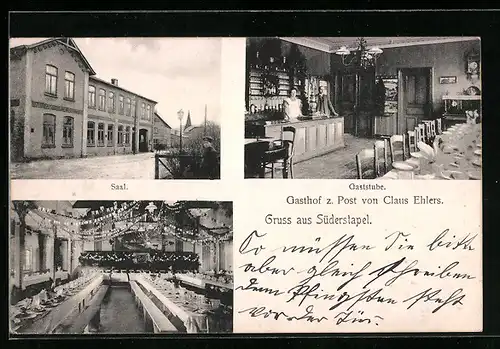 Saal.
Gaststube.
Gasthof z. Post von Claus Ehlers.
Gruss aus Süderstapel.
So müssen Sie bitte
aber gleich schreiben
denn Pfingsten steht
vor der Tür.